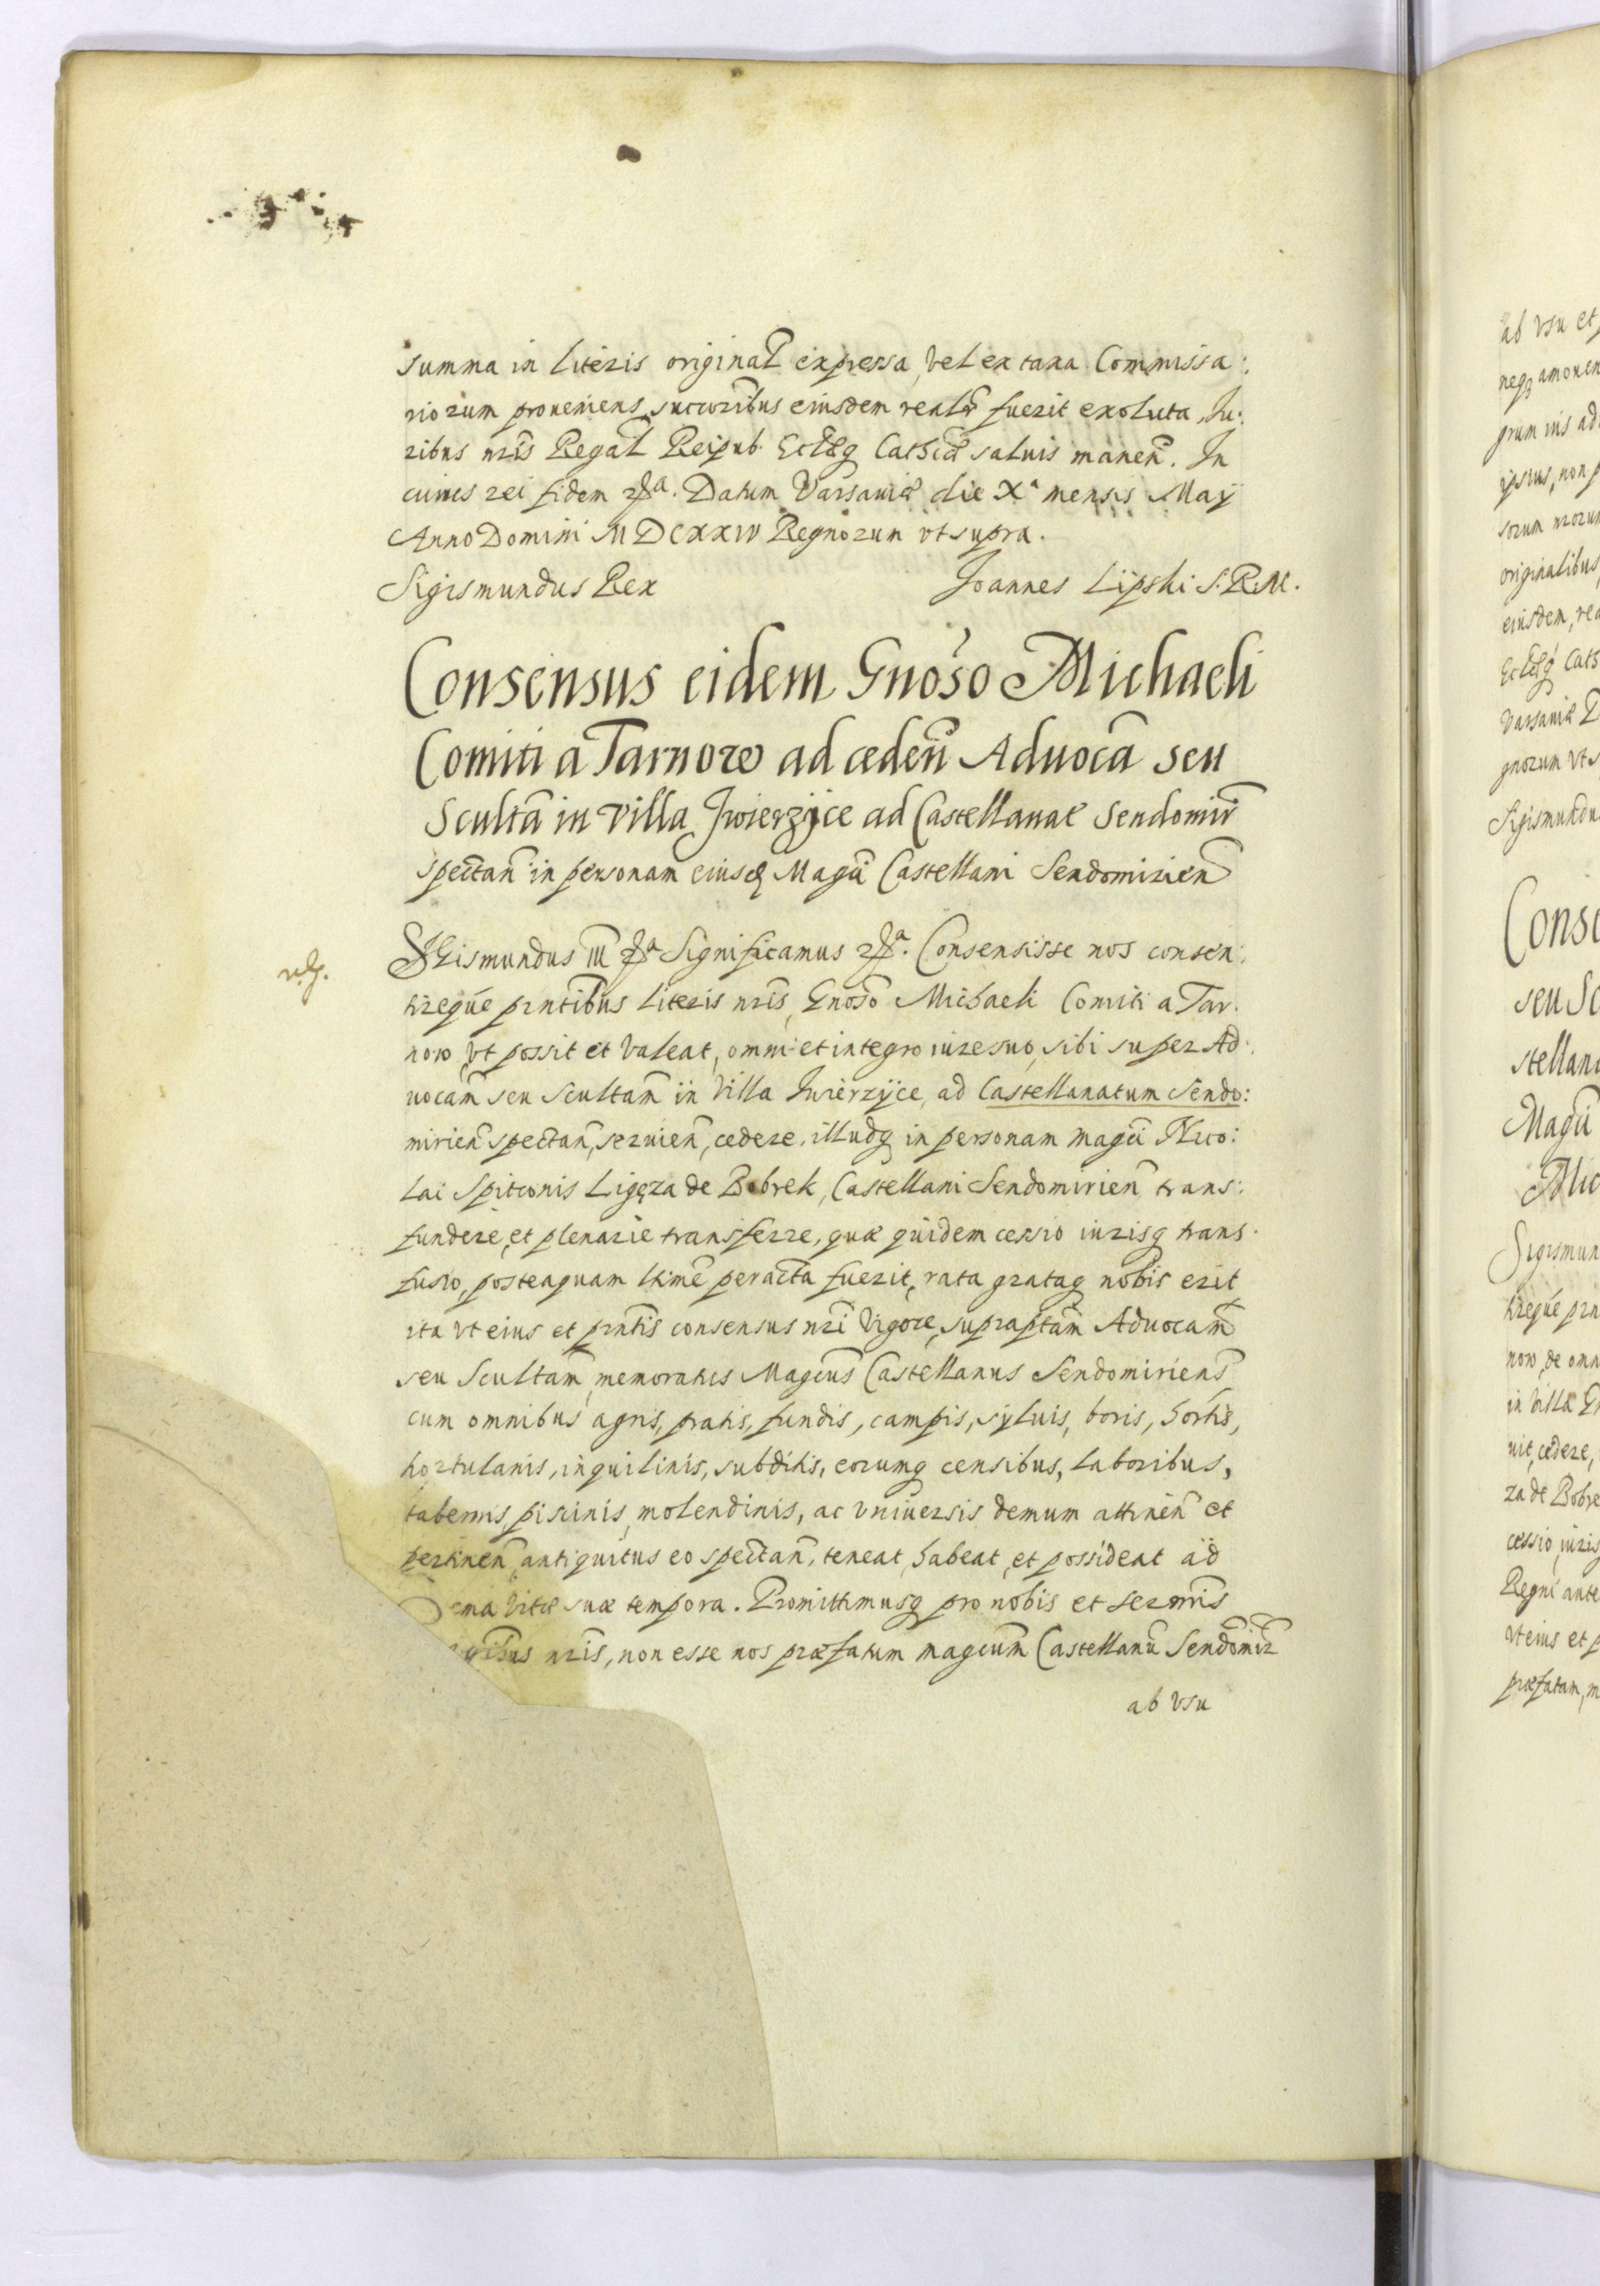 summa in literis original expressa, vel ex taxa Commissa:
riorum proveniens, succoribus eiusdem realr fuerit exoluta, Ju:
ribus nris Regal Reipub. Ecclæq Cathcæ saluis manen. In
cuius rei fidem &a. Datum Varsaviæ die Xa mensis Maÿ
Anno Domini MDCXXIV Regnorum vt supra.
Sigismundus Rex Joannes Lipski S.R.M.
Consensus eidem Gnoso Michaeli
Comiti a Tarnow ad cedeñ Aduocã seu
Scultã in villa Jwierzÿce ad Castellanat Sendomir
spectañ in personam eiusd Magci Castellani Sendomirień
Sigismundus III &a Significamus &a. Consensisse nos consen:
tireque pnntibus literis nris, Gnoso Michaeli Comiti a Tar:
now, vt possit et valeat, omni et integro iure suo, sibi super Ad:
uocam seu Scultam in villa Jwierzÿce, ad Castellanatum Sendo:
mirień spectań, servień, cedere, illudq in personam magci Nico:
lai Spitconis Ligęza de Bobrek, Castellani Sendomirień trans:
fundere, et plenarie transferre, quæ quidem cessio iurisq trans:
fusio, posteaquam ltime peracta fuerit, rata grataq nobis erit
ita vt eius et pnntis consensus nri vigore, supraptam Aduocam
seu Scultam, memoratus Magcus Castellanus Sendomiriens
cum omnibus agris, pratis, fundis, campis, syluis, boris, hortis,
hortulanis, inquilinis, subditis, eorumq censibus, laboribus,
tabernis, piscinis, molendinis, ac vniuersis demum attineń et
pertineń, antiquitus eo spectań, teneat, habeat, et possideat ad
ema vitæ suæ tempora. Promittimusq pro nobis et sermis
nris, non esse nos præfatum magcum Castellanũ Sendomir
ab vsu